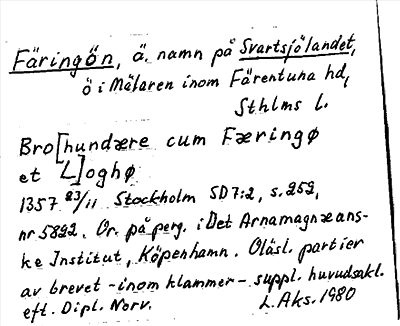 Färingön, ä. namn på Svartsjölandet,
ö i Mälaren inom Färentuna hd,
Sthlms l.
Bro[hundære cum Færingø
et L]oghø
1357 23/11 Stockholm SD 7:2, s. 252,
nr 5892. Or. på perg. i Det Arnamagnæans-
ke Institut, Köpenhamn. Oläsl. partier
av brevet - inom klammer - suppl. huvudsakl.
eft. Dipl. Norv.
L. Aks. 1980